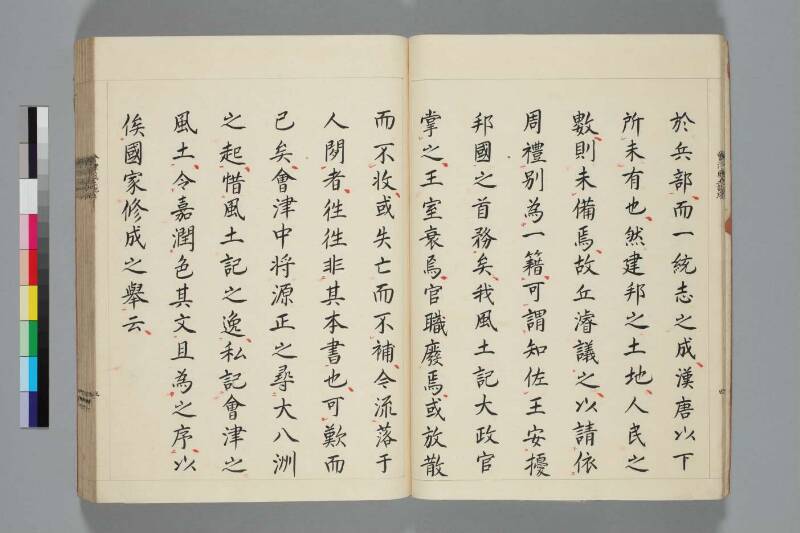 於兵部而一統志之成漢唐以下
所未有也然建邦之土地人民之
數則未備焉故丘濬議之以請依
周禮別為一籍可謂知佐王安擾
邦國之首務矣我風土記大政官
掌之王室衰焉官職廢焉或放散
而不收或失亡而不補令流落于
人間者徃徃非其本書也可歎而
已矣會津中将源正之尋大八洲
之起惜風土記之逸私記會津之
風土令嘉潤色其文且為之序以
俟國家修成之舉云